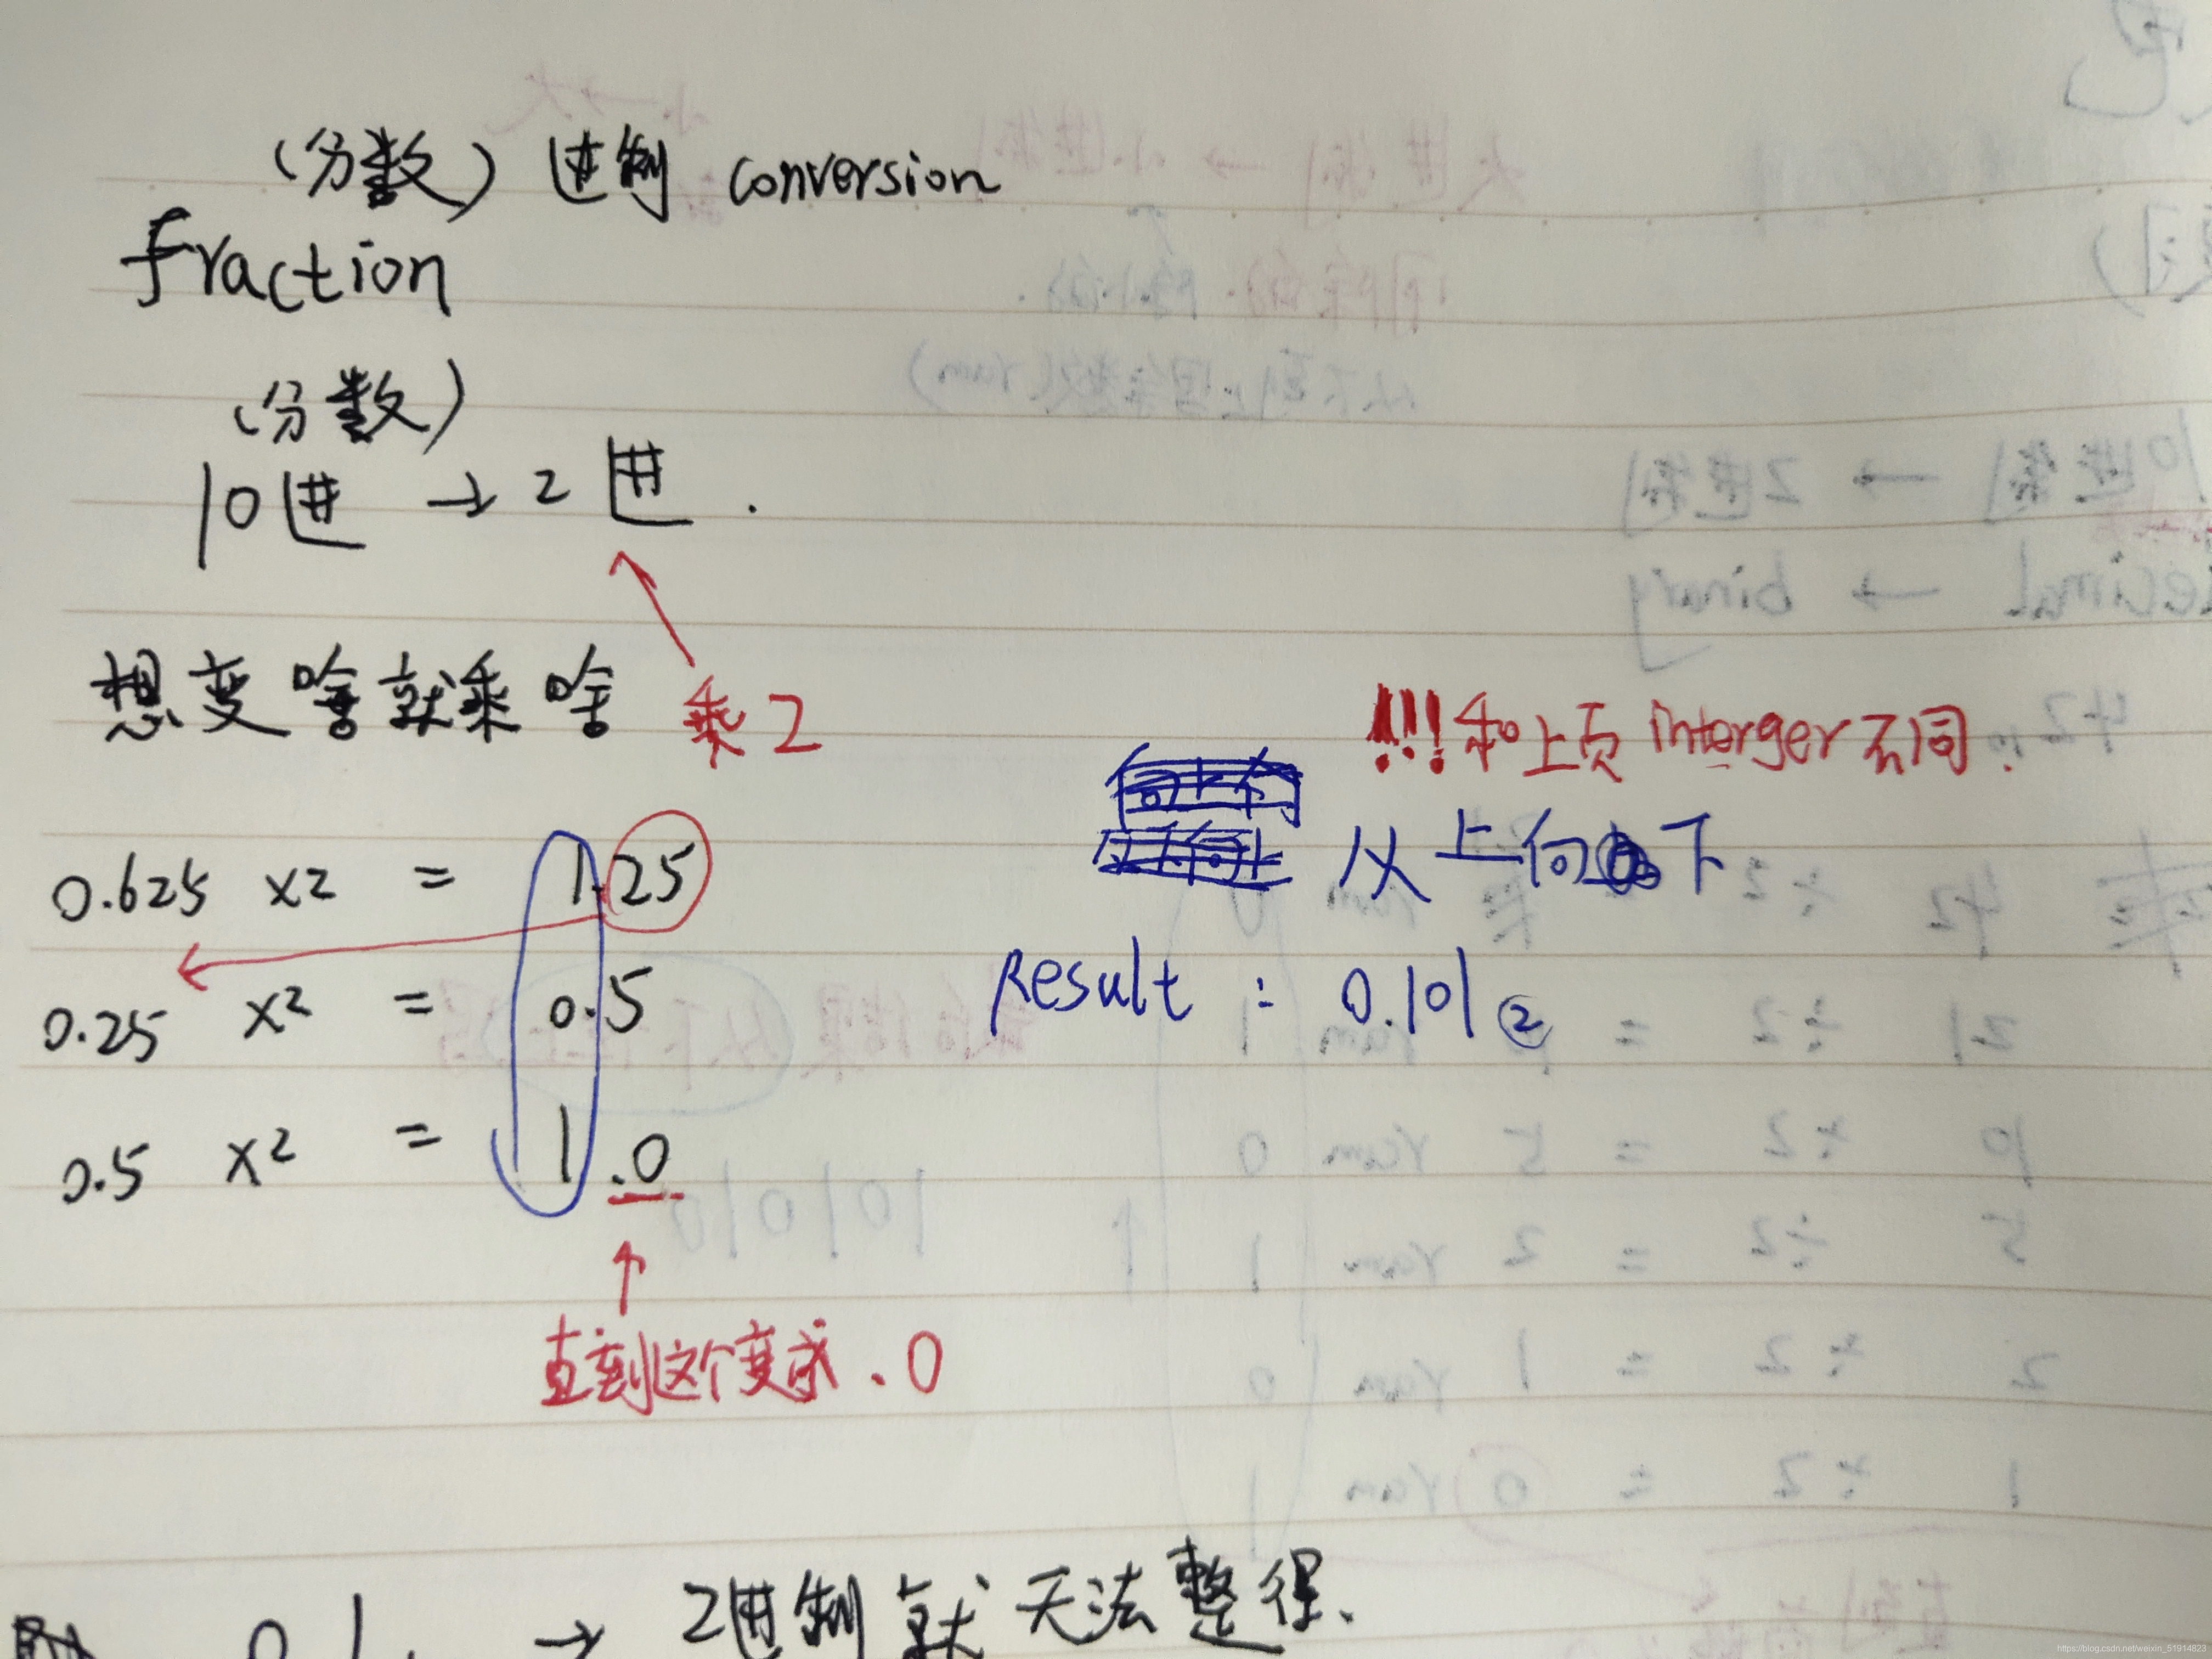 (分数) 进制 conversion
fraction
(分数)
10进 → 2进.
想变啥就乘啥
乘2
!!!和上页 interger 不同.
从上向下
0.625 x2 = 1.25
0.25 x2 = 0.5
result : 0.101 ②
0.5 x2 = 1.0
直到这个变成.0
0.1 → 2进制就无法整得.
https://blog.csdn.net/weixin_51914823